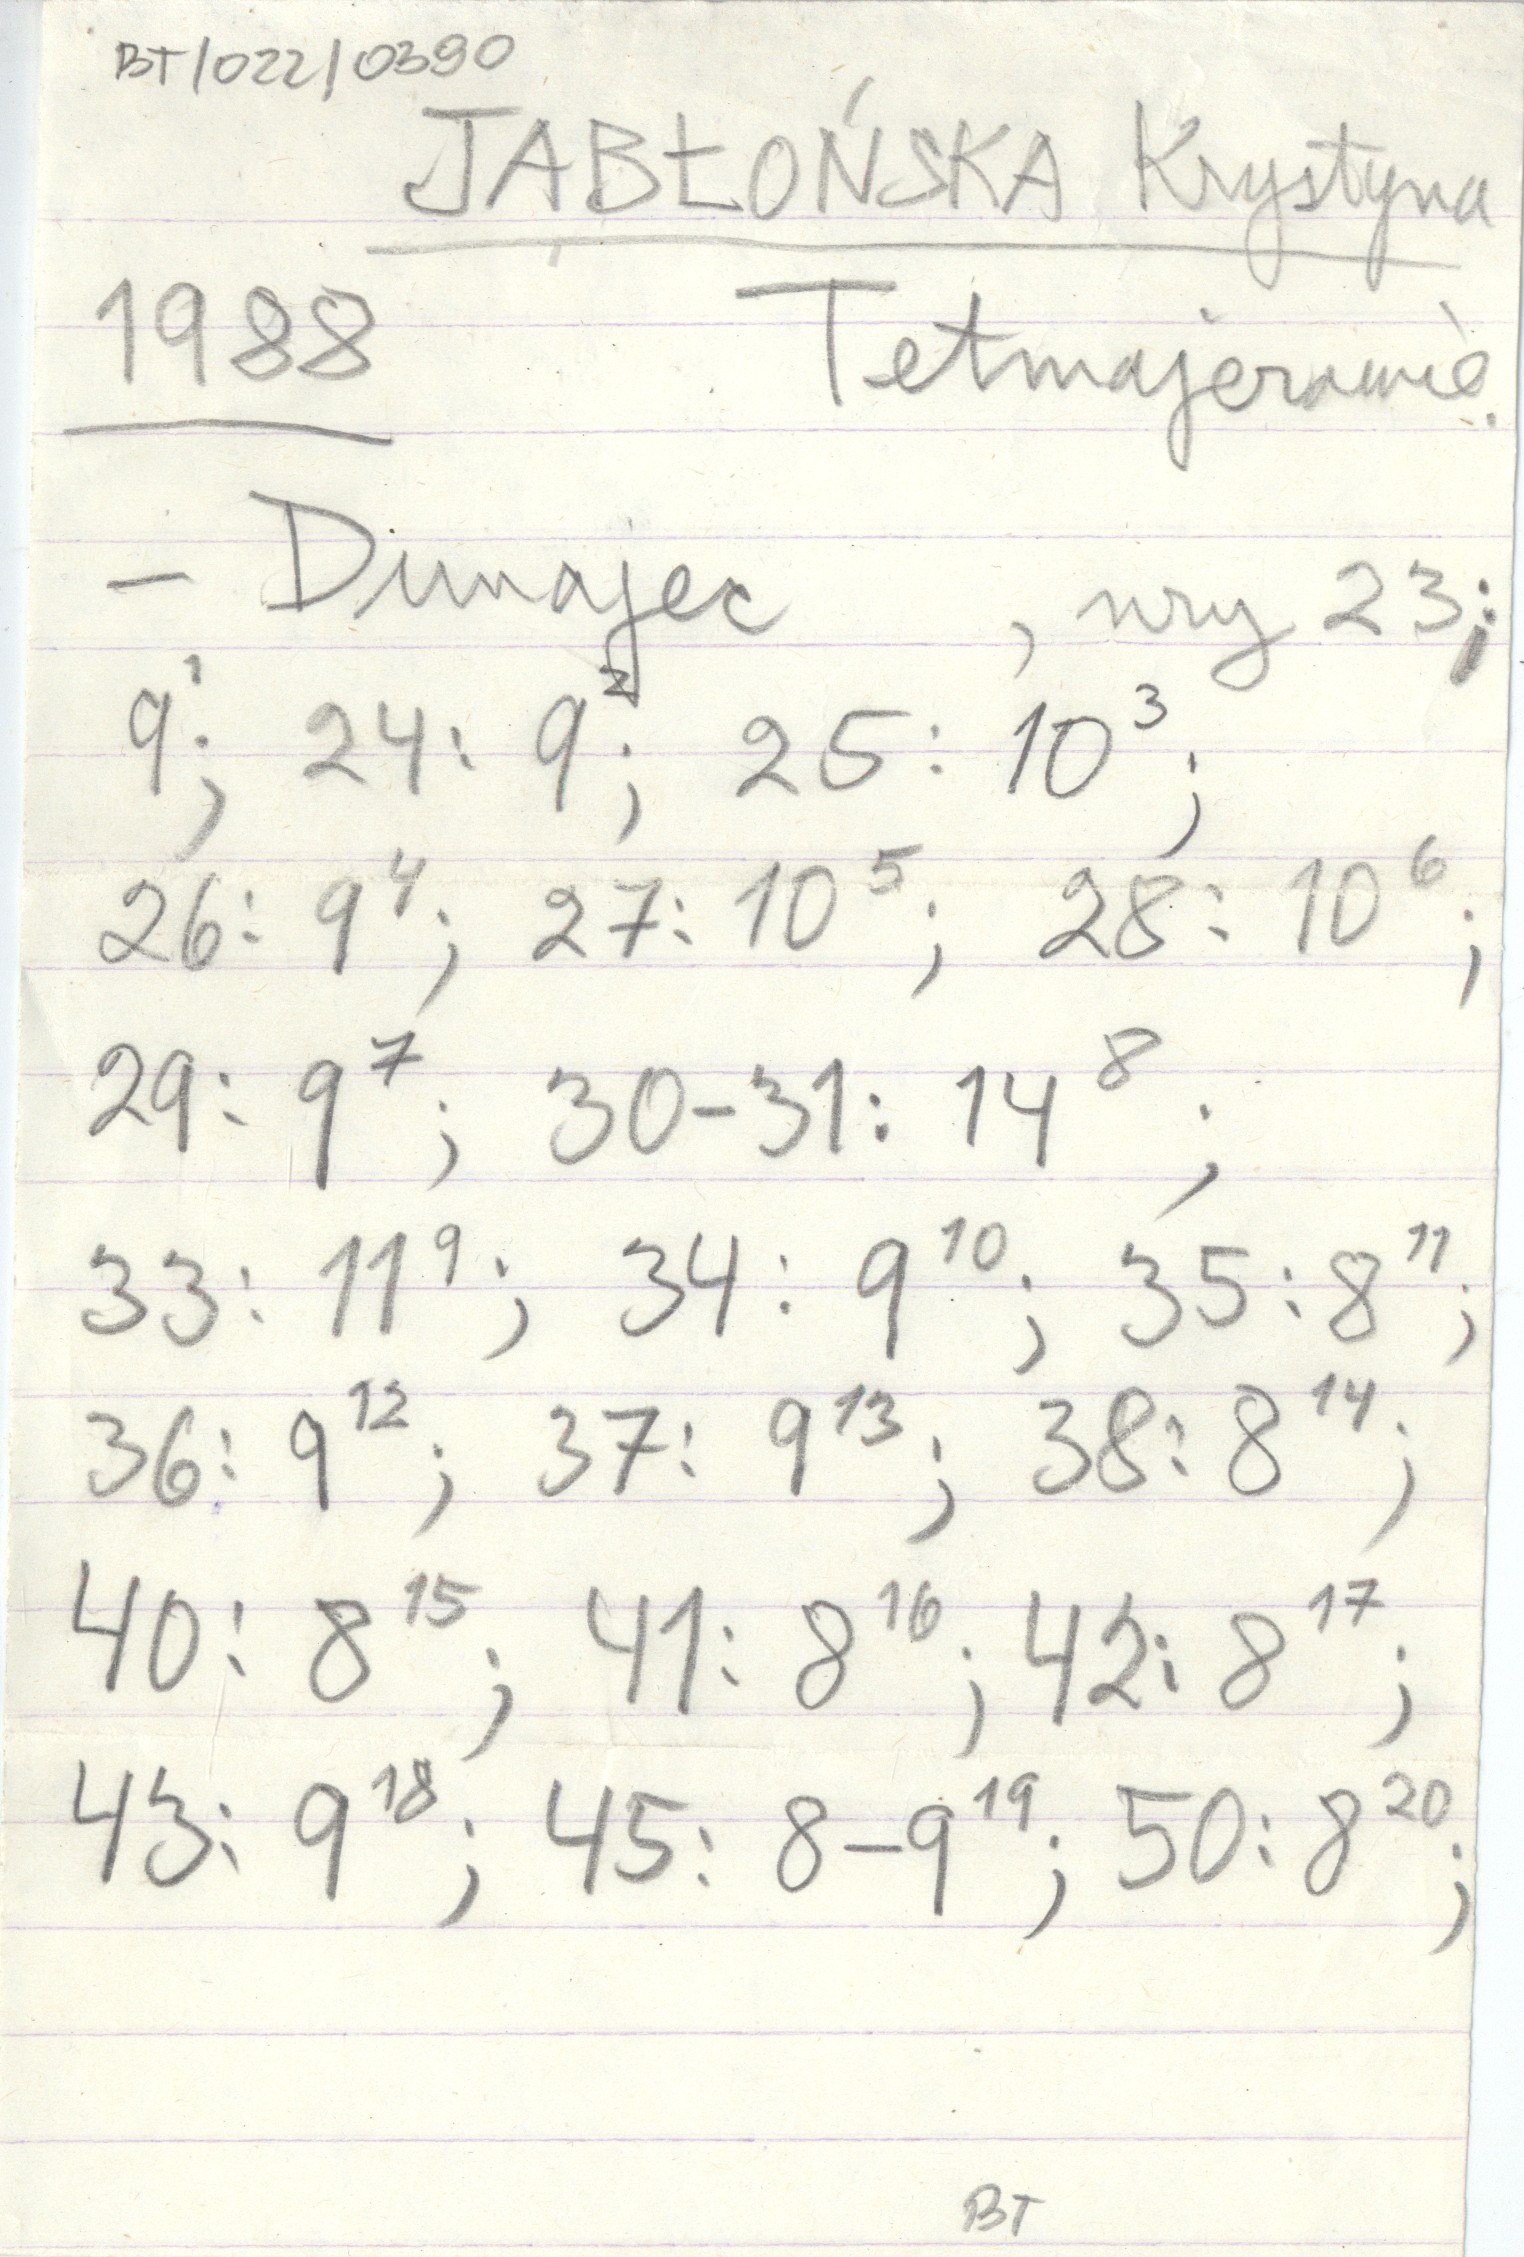 BT/022/0390
JABŁOŃSKA Krystyna
1988 Tetmajerowie.
- Dunajec , nry 23;
9¹; 24: 9²; 25: 10³;
26: 9⁴; 27: 10⁵; 28: 10⁶;
29: 9⁷; 30-31: 14⁸;
33: 11⁹; 34: 9¹⁰; 35: 8¹¹;
36: 9¹²; 37: 9¹³; 38: 8¹⁴;
40: 8¹⁵; 41: 8¹⁶; 42: 8¹⁷;
43: 9¹⁸; 45: 8-9¹⁹; 50: 8²⁰;
BT